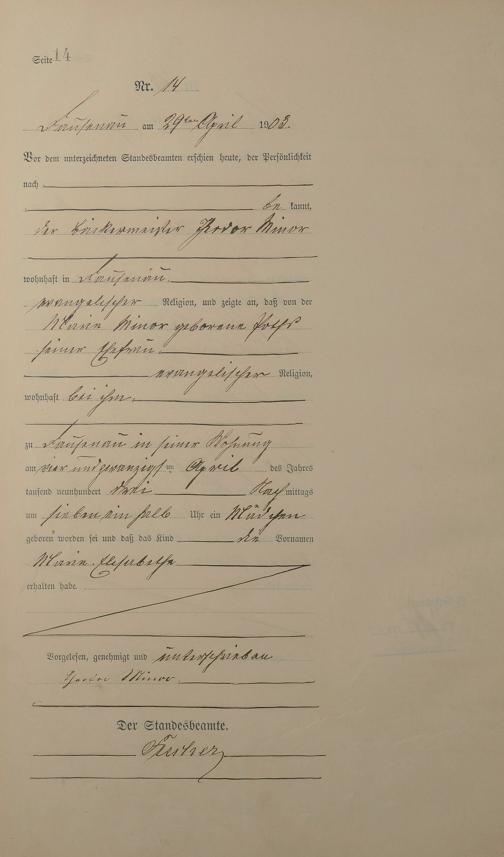 Seite 14
Nr. 14
Dausenau am 29ten April 1903.
Vor dem unterzeichneten Standesbeamten erschien heute, der Persönlichkeit
nach
be kannt,
der Bäckermeister Minor
wohnhaft in Dausenau
evangelischer Religion, und zeigte an, daß von der
Marie Minor geborene
seiner Ehefrau
evangelischer Religion,
wohnhaft bei ihm
zu Dausenau in seiner Wohnung
am vier und zwanzigsten April des Jahres
tausend neunhundert drei Nachmittags
um sieben ein halb Uhr ein Mädchen
geboren worden sei und daß das Kind die Vornamen
Marie Elisabetha
erhalten habe.
Vorgelesen, genehmigt und unterschrieben
Minor
Der Standesbeamte.